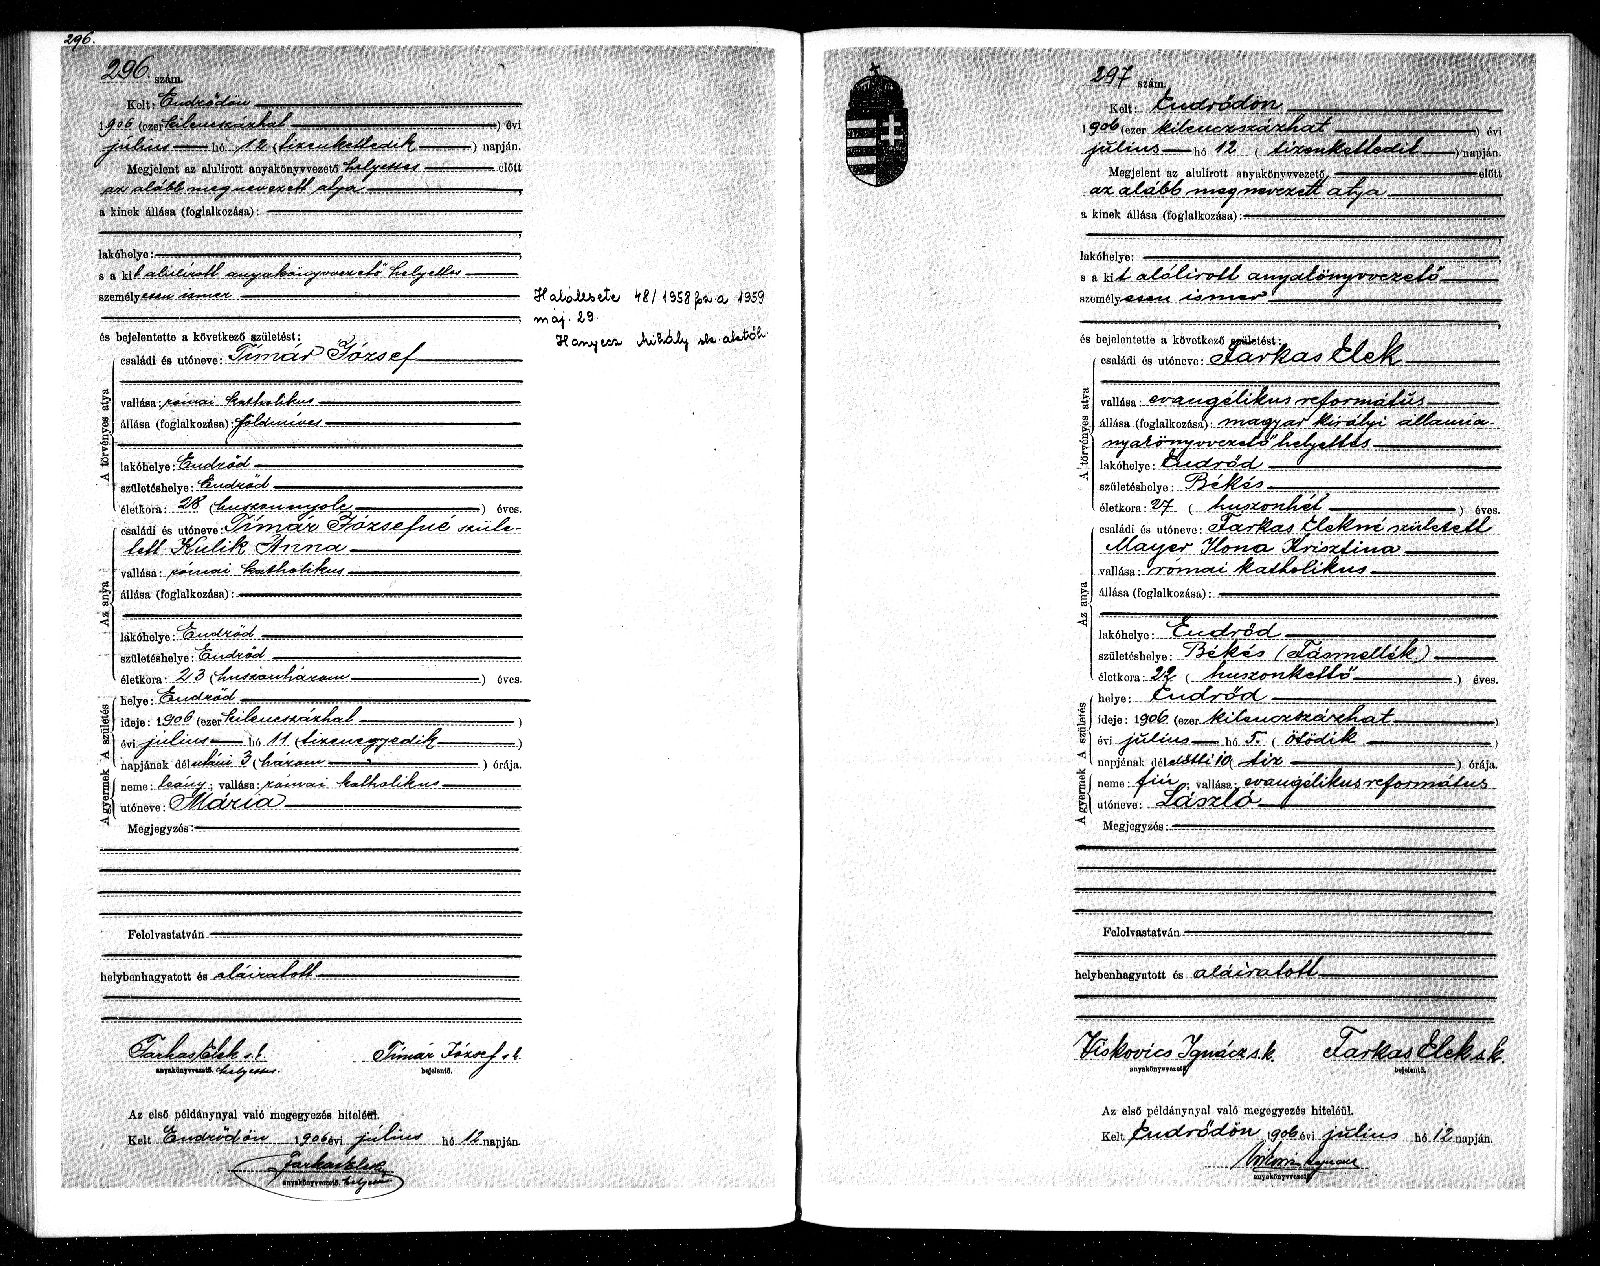 296.
296 szám.
Kelt: Endrődön
1906 (ezer kilencszázhat) évi
július hó 12 (tizenkettedik) napján.
Megjelent az alulírott anyakönyvvezető helyettes előtt
az alább megnevezett atya
a kinek állása (foglalkozása):
lakóhelye:
s a kit alulírott anyakönyvvezető helyettes
személyesen ismer
és bejelentette a következő születést:
A törvényes atya
családi és utóneve: Tímár József
vallása: római katholikus
állása (foglalkozása): földmíves
lakóhelye: Endrőd
születéshelye: Endrőd
életkora: 28 (huszonnyolc) éves.
Az anya
családi és utóneve: Tímár Józsefné szüle-
tett Kulik Anna
vallása: római katholikus
állása (foglalkozása):
lakóhelye: Endrőd
születéshelye: Endrőd
életkora: 23 (huszonhárom) éves.
A születés
helye: Endrőd
ideje: 1906 (ezer kilencszázhat)
évi július hó 11 (tizenegyedik)
napjának délutáni 3 (három) órája.
A gyermek
neme: leány; vallása: római katholikus
utóneve: Mária
Megjegyzés:
Felolvastatván
helybenhagyatott és aláiratott
Farkas Elek s.k. Tímár József s.k.
anyakönyvvezető. helyettes. bejelentő.
Az első példánynyal való megegyezés hiteléül.
Kelt Endrődön 1906 évi július hó 12 napján.
Farkas Elek
anyakönyvvezető. helyettes
Halálesete 48/1958 fsz. a 1959
máj. 29.
Hanyecz Mihály sk. alatóh.
297 szám.
Kelt: Endrődön
1906 (ezer kilenczszázhat) évi
július hó 12 (tizenkettedik) napján.
Megjelent az alulírott anyakönyvvezető előtt
az alább megnevezett atya
a kinek állása (foglalkozása):
lakóhelye:
s a kit alólirott anyakönyvvezető
személyesen ismer
és bejelentette a következő születést:
A törvényes atya
családi és utóneve: Farkas Elek
vallása: evangélikus református
állása (foglalkozása): magyar királyi állami a-
nyakönyvvezető helyettes
lakóhelye: Endrőd
születéshelye: Békés
életkora: 27 (huszonhét) éves.
Az anya
családi és utóneve: Farkas Elekné született
Mayer Ilona Krisztina
vallása: római katholikus
állása (foglalkozása):
lakóhelye: Endrőd
születéshelye: Békés (Fásmellék)
életkora: 22 (huszonkettő) éves.
A születés
helye: Endrőd
ideje: 1906 (ezer kilenczszázhat)
évi július hó 5. (ötödik)
napjának délelőtti 10 (tiz) órája.
A gyermek
neme: fiú; vallása: evangélikus református
utóneve: László
Megjegyzés:
Felolvastatván
helybenhagyatott és aláiratott
Viskovics Ignácz s.k. Farkas Elek s.k.
anyakönyvvezető. bejelentő.
Az első példánynyal való megegyezés hiteléül.
Kelt Endrődön 1906 évi július hó 12 napján.
anyakönyvvezető.